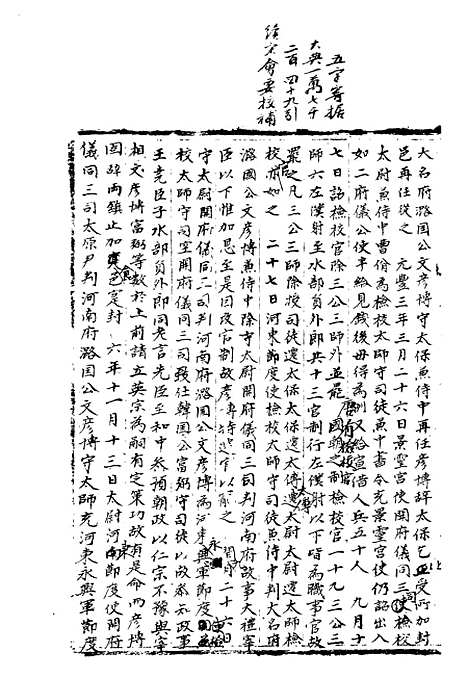 五字旁據
大典一萬七千
二百四十九引
續宋會要校補
大名府潞國公文彥博守太保兼侍中再任彥博辭太保乞止受所加封
邑再任從之 元豐三年三月二十六日景靈宮使開府儀同三司檢校
太尉兼侍中曹佾為檢校太師守司徒兼中書令充景靈宮使仍詔出入
如二府儀公使半給見錢後毋得為例又給宣借人兵五十人 九月十
七日詔檢校官除三公三師外並罷國朝之制檢校官一十九三公三
師六左僕射至水部員外郎共十三官制行左僕射以下皆為職事官故
罷之凡三公三師除授司徒遷太保太保遷太傅遷太尉太尉遷太師檢
校亦如之 二十七日河東節度使檢校太師守司徒兼侍中判大名府
潞國公文彥博兼侍中除守太尉開府儀同三司判河南府故事大禮宰
臣以下惟加恩至是因改官制故彥博特遷官以寵之 閏九月二十六日
守太尉開府儀同三司判河南府潞國公文彥博為河東永興軍節度使
校太師守司空開府儀同三司致仕韓國公富弼守司徒以故參知政事
王堯臣子水部員外郎同老言先臣至和中參預朝政以仁宗不豫與宰
相文彥博富弼等數於上前請立英宗為嗣有定策功故有是命而彥博
固辭兩鎮止加食邑寔封 六年十一月十三日太尉河東節度使開府
儀同三司太原尹判河南府潞國公文彥博守太師充河東永興軍節度